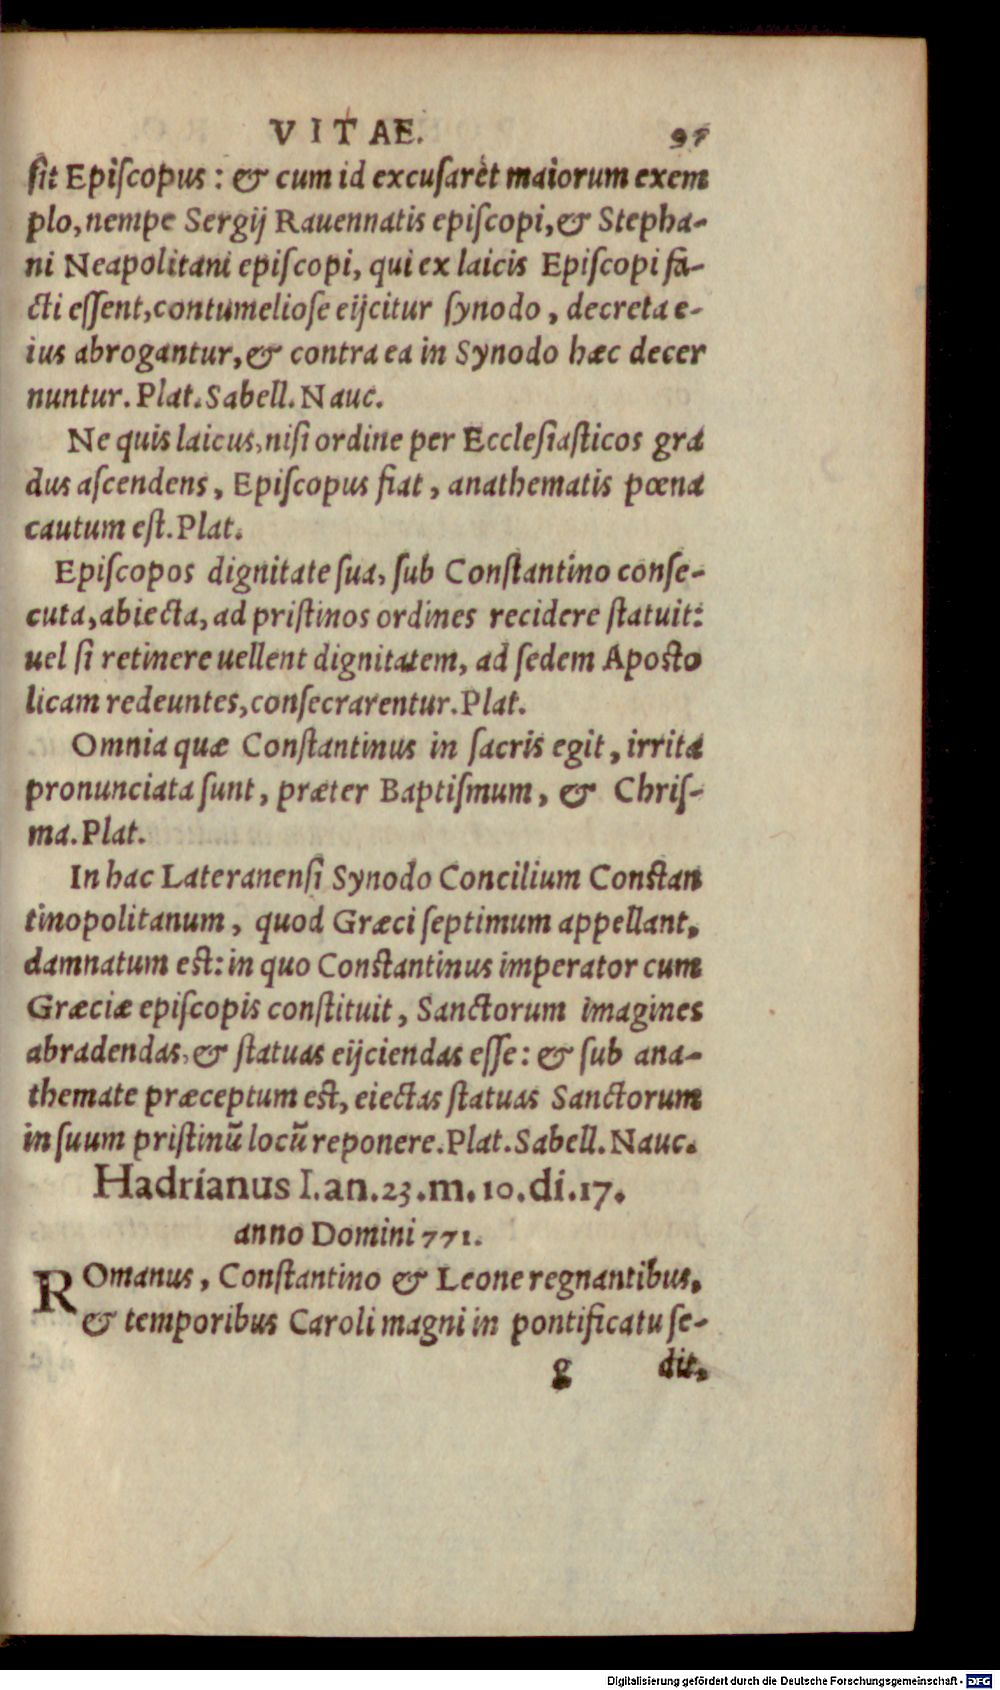 VITAE. 97
ſit Epiſcopus: & cum id excuſaret maiorum exem
plo, nempe Sergij Rauennatis epiſcopi, & Stepha-
ni Neapolitani epiſcopi, qui ex laicis Epiſcopi fa-
cti eſſent, contumelioſe eijcitur ſynodo, decreta e-
ius abrogantur, & contra ea in Synodo hæc decer
nuntur. Plat. Sabell. Nauc.
Ne quis laicus, niſi ordine per Eccleſiaſticos gra
dus aſcendens, Epiſcopus fiat, anathematis pœna
cautum eſt. Plat.
Epiſcopos dignitate ſua, ſub Conſtantino conſe-
cuta, abiecta, ad priſtinos ordines recidere ſtatuit:
uel ſi retinere uellent dignitatem, ad ſedem Apoſto
licam redeuntes, conſecrarentur. Plat.
Omnia quæ Conſtantinus in ſacris egit, irrita
pronunciata ſunt, præter Baptiſmum, & Chriſ-
ma. Plat.
In hac Lateranenſi Synodo Concilium Conſtan
tinopolitanum, quod Græci ſeptimum appellant,
damnatum eſt: in quo Conſtantinus imperator cum
Græciæ epiſcopis conſtituit, Sanctorum imagines
abradendas, & ſtatuas eijciendas eſſe: & ſub ana-
themate præceptum eſt, eiectas ſtatuas Sanctorum
in ſuum priſtinũ locũ reponere. Plat. Sabell. Nauc.
Hadrianus I. an. 23. m. 10. di. 17.
anno Domini 771.
ROmanus, Conſtantino & Leone regnantibus,
& temporibus Caroli magni in pontificatu ſe-
g dit,
Digitalisierung gefördert durch die Deutsche Forschungsgemeinschaft - DFG